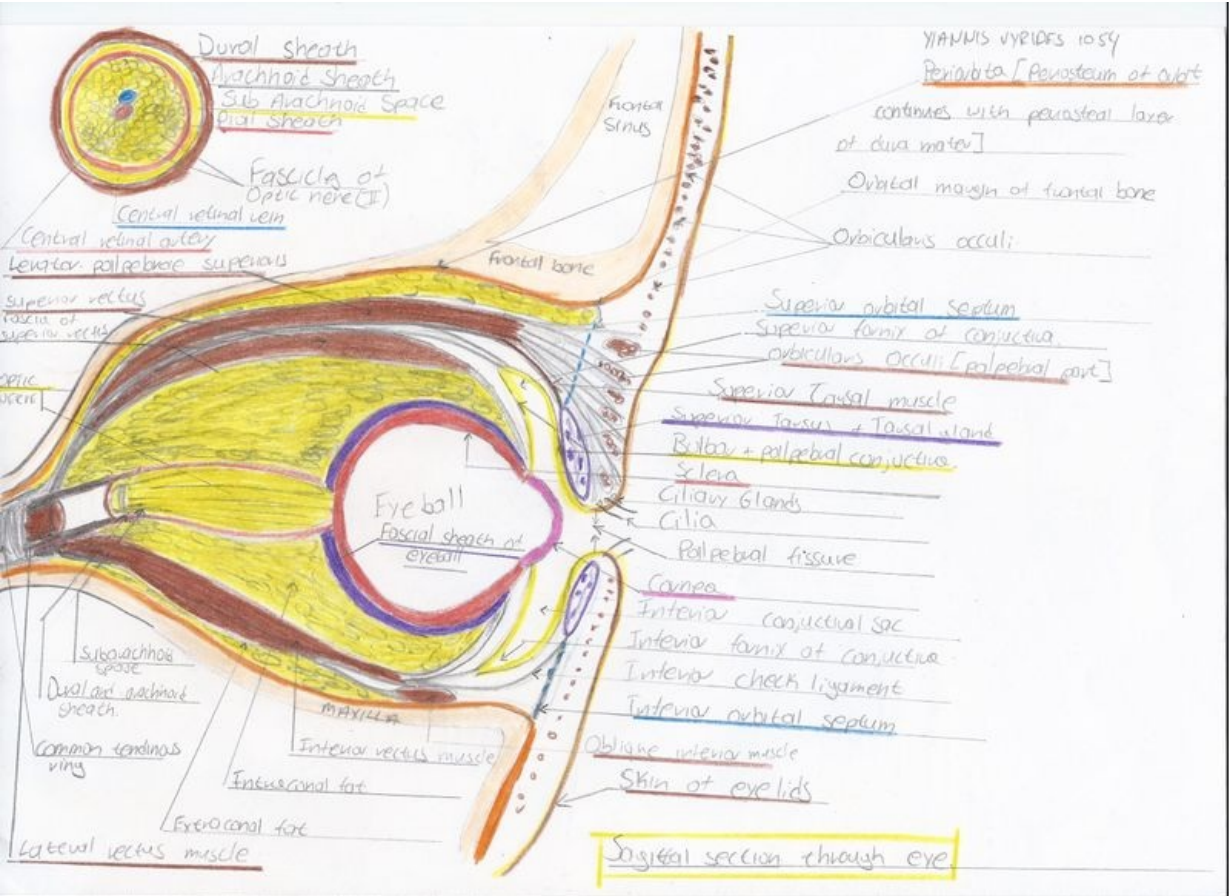 Dural sheath
Arachnoid Sheath
Sub Arachnoid Space
Pial sheath
Fascicla of
Optic nerve (II)
Central retinal vein
Central retinal artery
Levator palpebrae superioris
Superior rectus
Fascia of
superior rectus
Optic
nerve
Subarachnoid
space
Dural and arachinoid
sheath.
Common tendinous
ring
Lateral rectus muscle
Frontal
sinus
Frontal bone
Eyeball
Fascial sheath of
eyeball
MAXILLA
Inferior rectus muscle
Intraconal fat
Extraconal fat
YIANNIS VYRIDES 1054
Periorbita [Periosteum of orbit
continues with periosteal layer
of dura mater]
Orbital margin of frontal bone
Orbicularis occuli
Superior orbital septum
Superior fornix of conjuctiva
Orbicularis Occuli [palpebral part]
Superior Tarsal muscle
Superior Tarsus + Tarsal gland
Bulbar + palpebral conjuctiva
Sclera
Ciliary Glands
Cilia
Palpebral fissure
Cornea
Inferior conjuctival sac
Inferior fornix of conjuctiva
Inferior check ligament
Inferior orbital septum
Oblique inferior muscle
Skin of eyelids
Sagittal section through eye